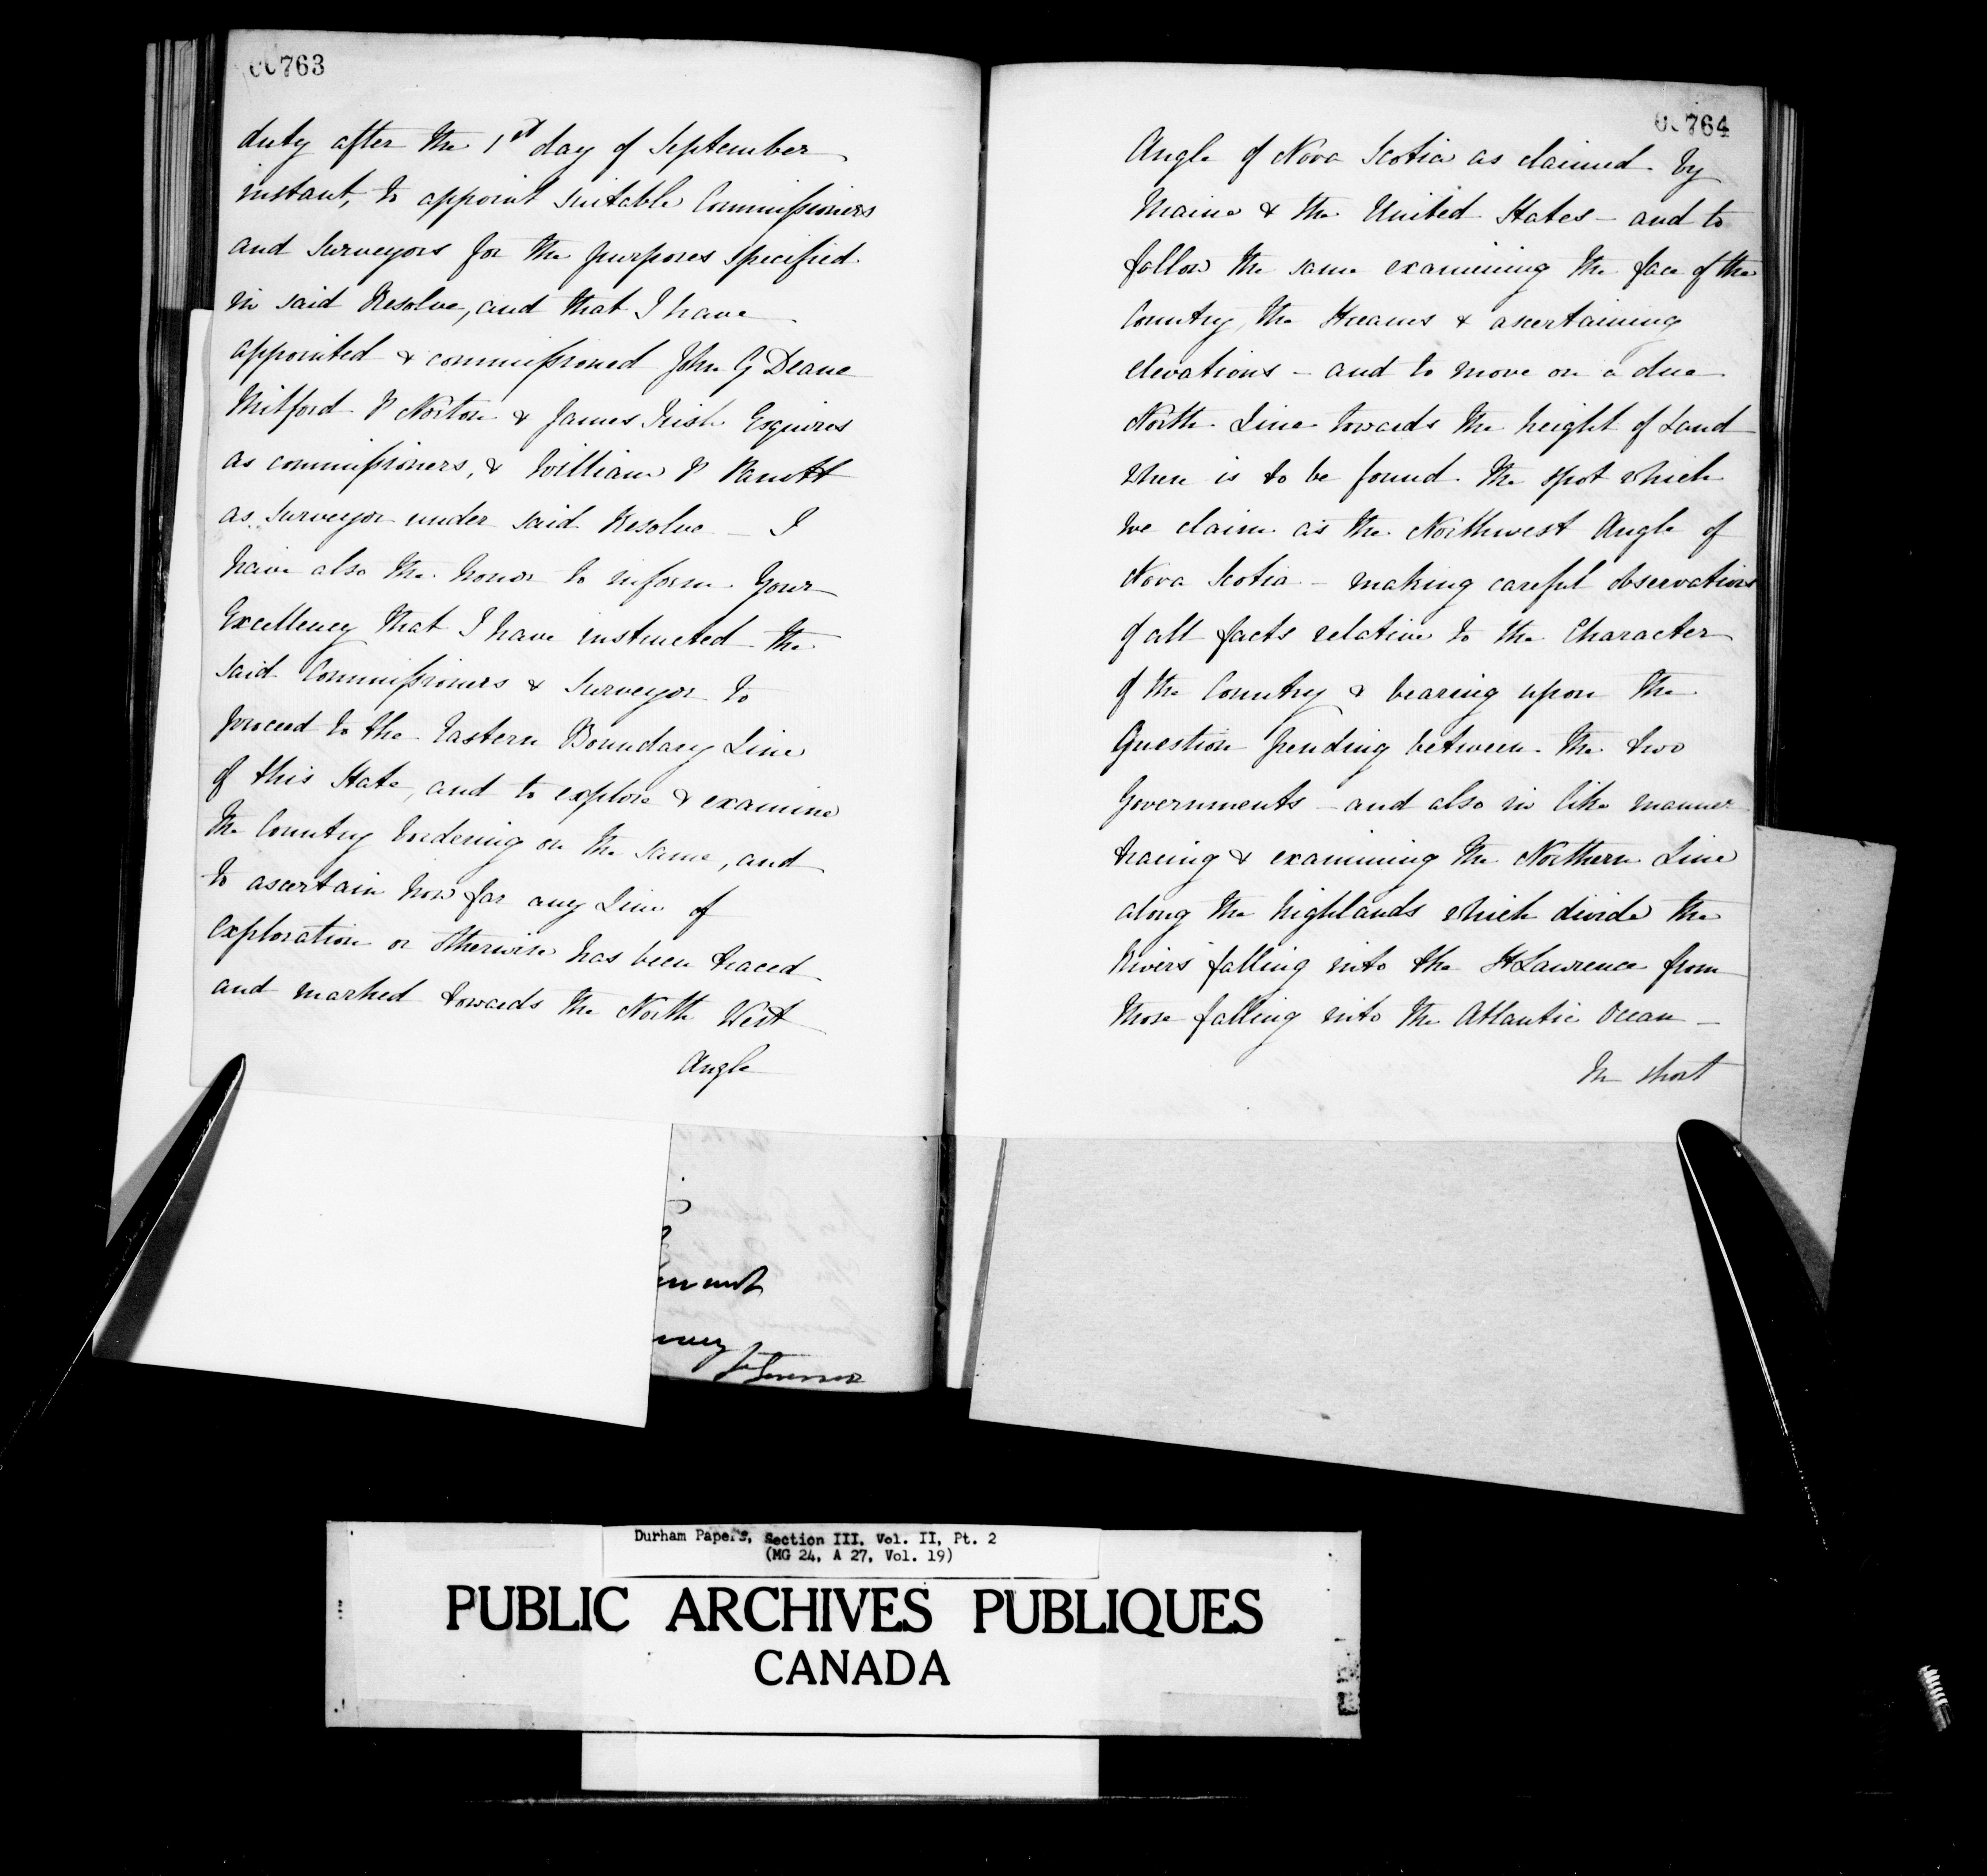 00763
duty after the 1st day of September
instant, to appoint suitable Commissioners
and Surveyors for the purposes specified
in said Resolve, and that I have
appointed & commissioned John G Deane
Milford P Norton & James Irish Esquires
as commissioners, & William P Parrott
as Surveyor under said Resolve — I
have also the honor to inform Your
Excellency that I have instructed the
said Commissioners & Surveyor to
proceed to the Eastern Boundary Line
of this State, and to explore & examine
the Country bordering on the same, and
to ascertain how far any Line of
exploration or otherwise has been traced
and marked towards the North West
Angle
00764
Angle of Nova Scotia as claimed by
Maine & the United States — and to
follow the same examining the face of the
Country, the Streams & ascertaining
elevations — and to move on a due
North Line towards the height of Land
where is to be found the spot which
we claim as the Northwest Angle of
Nova Scotia — making careful observations
of all facts relative to the Character
of the Country & bearing upon the
Question pending between the two
Governments — and also in like manner
tracing & examining the Northern Line
along the highlands which divide the
Rivers falling into the St Lawrence from
those falling into the Atlantic Ocean —
In short
Durham Papers, Section III, Vol. II, Pt. 2
(MG 24, A 27, Vol. 19)
PUBLIC ARCHIVES PUBLIQUES
CANADA